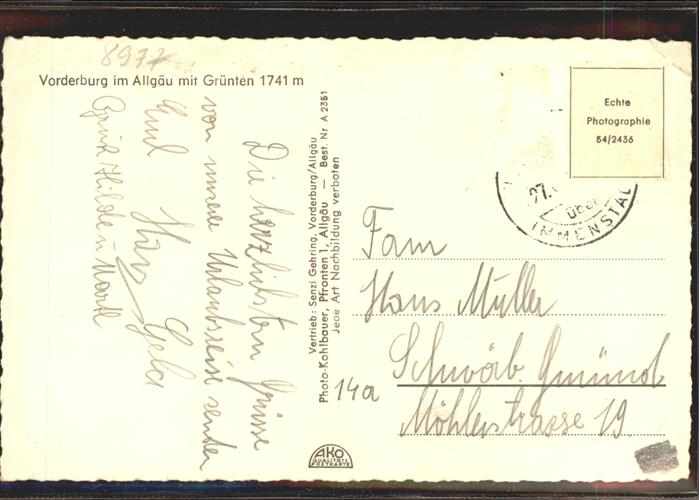 8977
Vorderburg im Allgäu mit Grünten 1741 m
Die herzlichsten Grüsse
von unserer Urlaubsreise senden
Euch
Gela
Hilde u
Vertrieb: Senzi Gehring, Vorderburg/Allgäu
Photo-Kohlbauer, Pfronten 1, Allgäu — Best. Nr A 2351
Jede Art Nachbildung verboten
Echte
Photographie
54/2436
27.
über
IMMENSTA
Fam
Hans Müller
Schwäb. Gmünd
Möhlerstrasse 19.
14a
AKO
QUALITÄTS
POSTKARTE